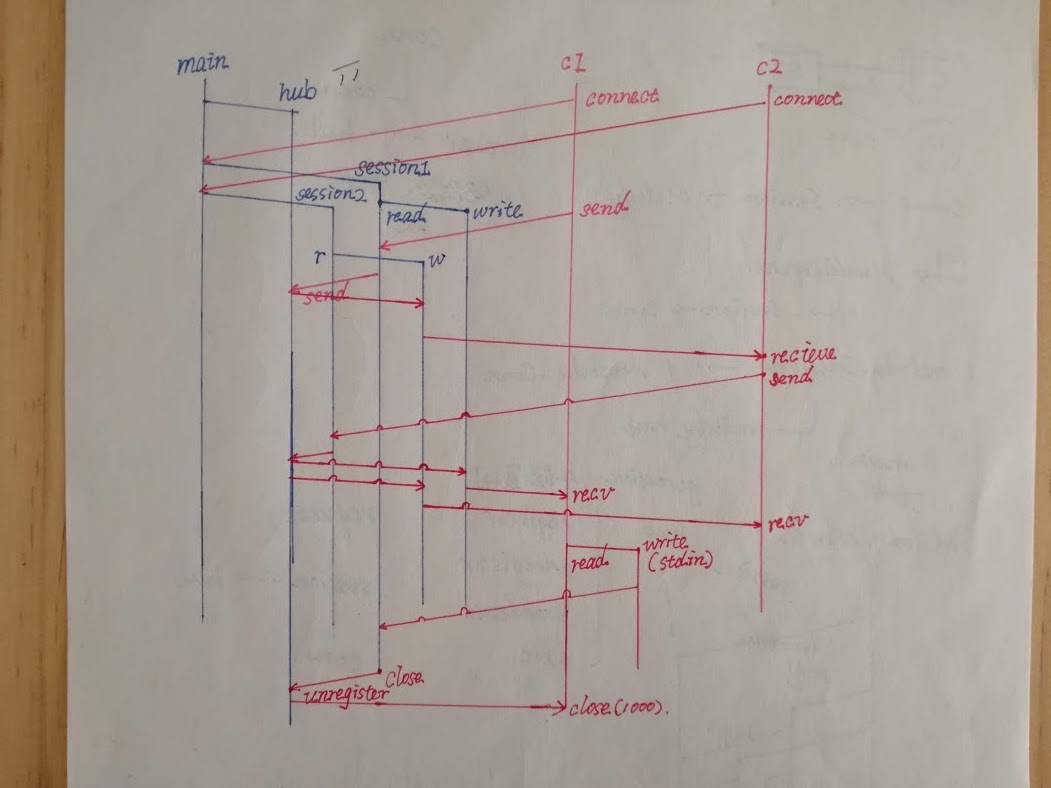 main
hub
c1
c2
connect
connect
session1
session2
read
write
send
r
w
send
recieve
send
recv
recv
read
write
(stdin)
close
unregister
close(1000).